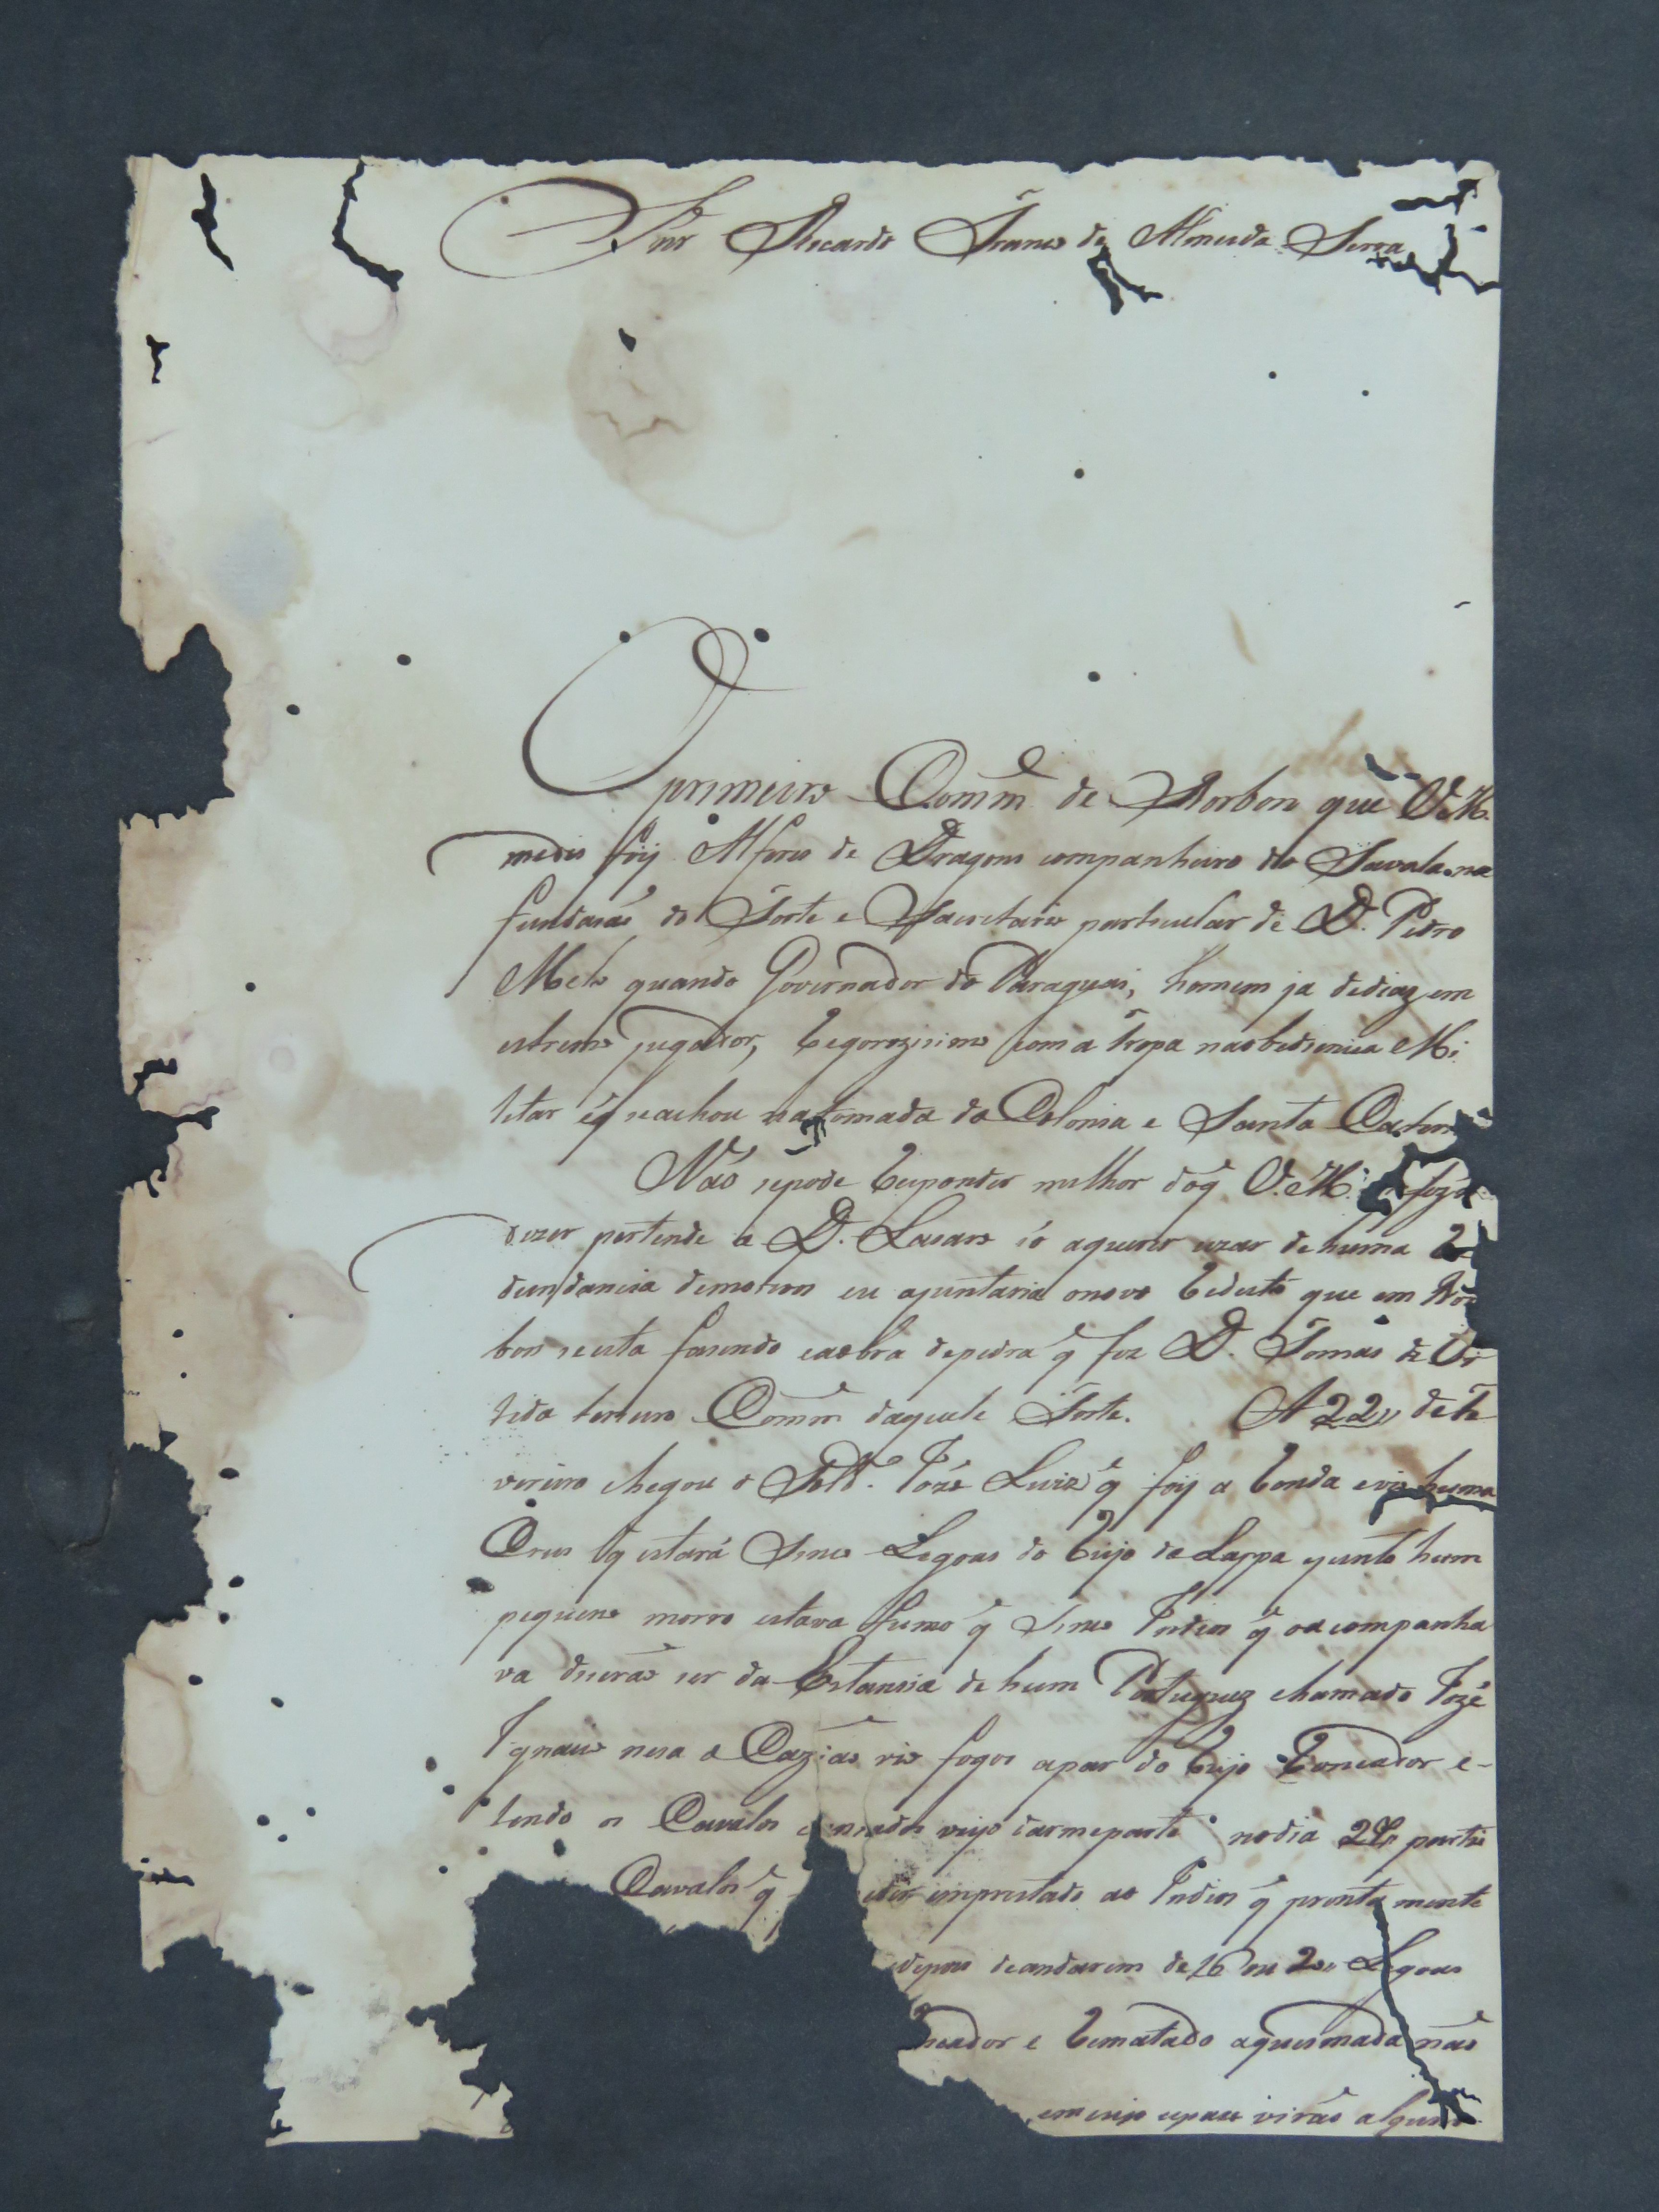 Snr Ricardo Franco de Almeida Serra
O primeiro Comm.e de Borbon que V.M.
medis foij Alferes de Dragons companheiro do Savala na
fundasaõ do Forte e Sacretario particular de D. Pedro
Melo quando Governador do Paraguai, homem ja dediaz em
estremo jugador, regorozisimo com a tropa naobediencia Mi
letar e q̃ seachou na tomada da Colonia e Santa Cater
Naõ sepode responder milhor doq̃ V.M. o fez
dezer pertende a D. Lasaro só aquerer uzar de huma Re
dundancia demotivos eu ajuntaria onovo reduto que em Bor
bon se esta fasendo eaobra depedra q̃ fez D. Tomas de Or
teda terseiro Comm.e daquele Forte. A 22,, de Fe
vereiro chegou o Sold.o Jozé Luiz q̃ foij a ronda evio huma
Crus q̃ estará sinco Legoas do rijo da Lappa ejunto hum
pequeno morro estava fumo q̃ sinco Indios q̃ oacompanha
va diseraõ ser da Estansia de hum Portuguez chamado Jozé
Ignacio nesa ocaziaõ vio fogos apar do rijo Roncador e
tendo os Cavalos cansados veijo darmeparte nodia 24 partio
Cavalos q̃ emprestado ao Indios q̃ pronta mente
depois deandarem de 16 ou 20,, Legoas
ncador e rematado aqueimada naõ
em cujo espaso viraõ alguns